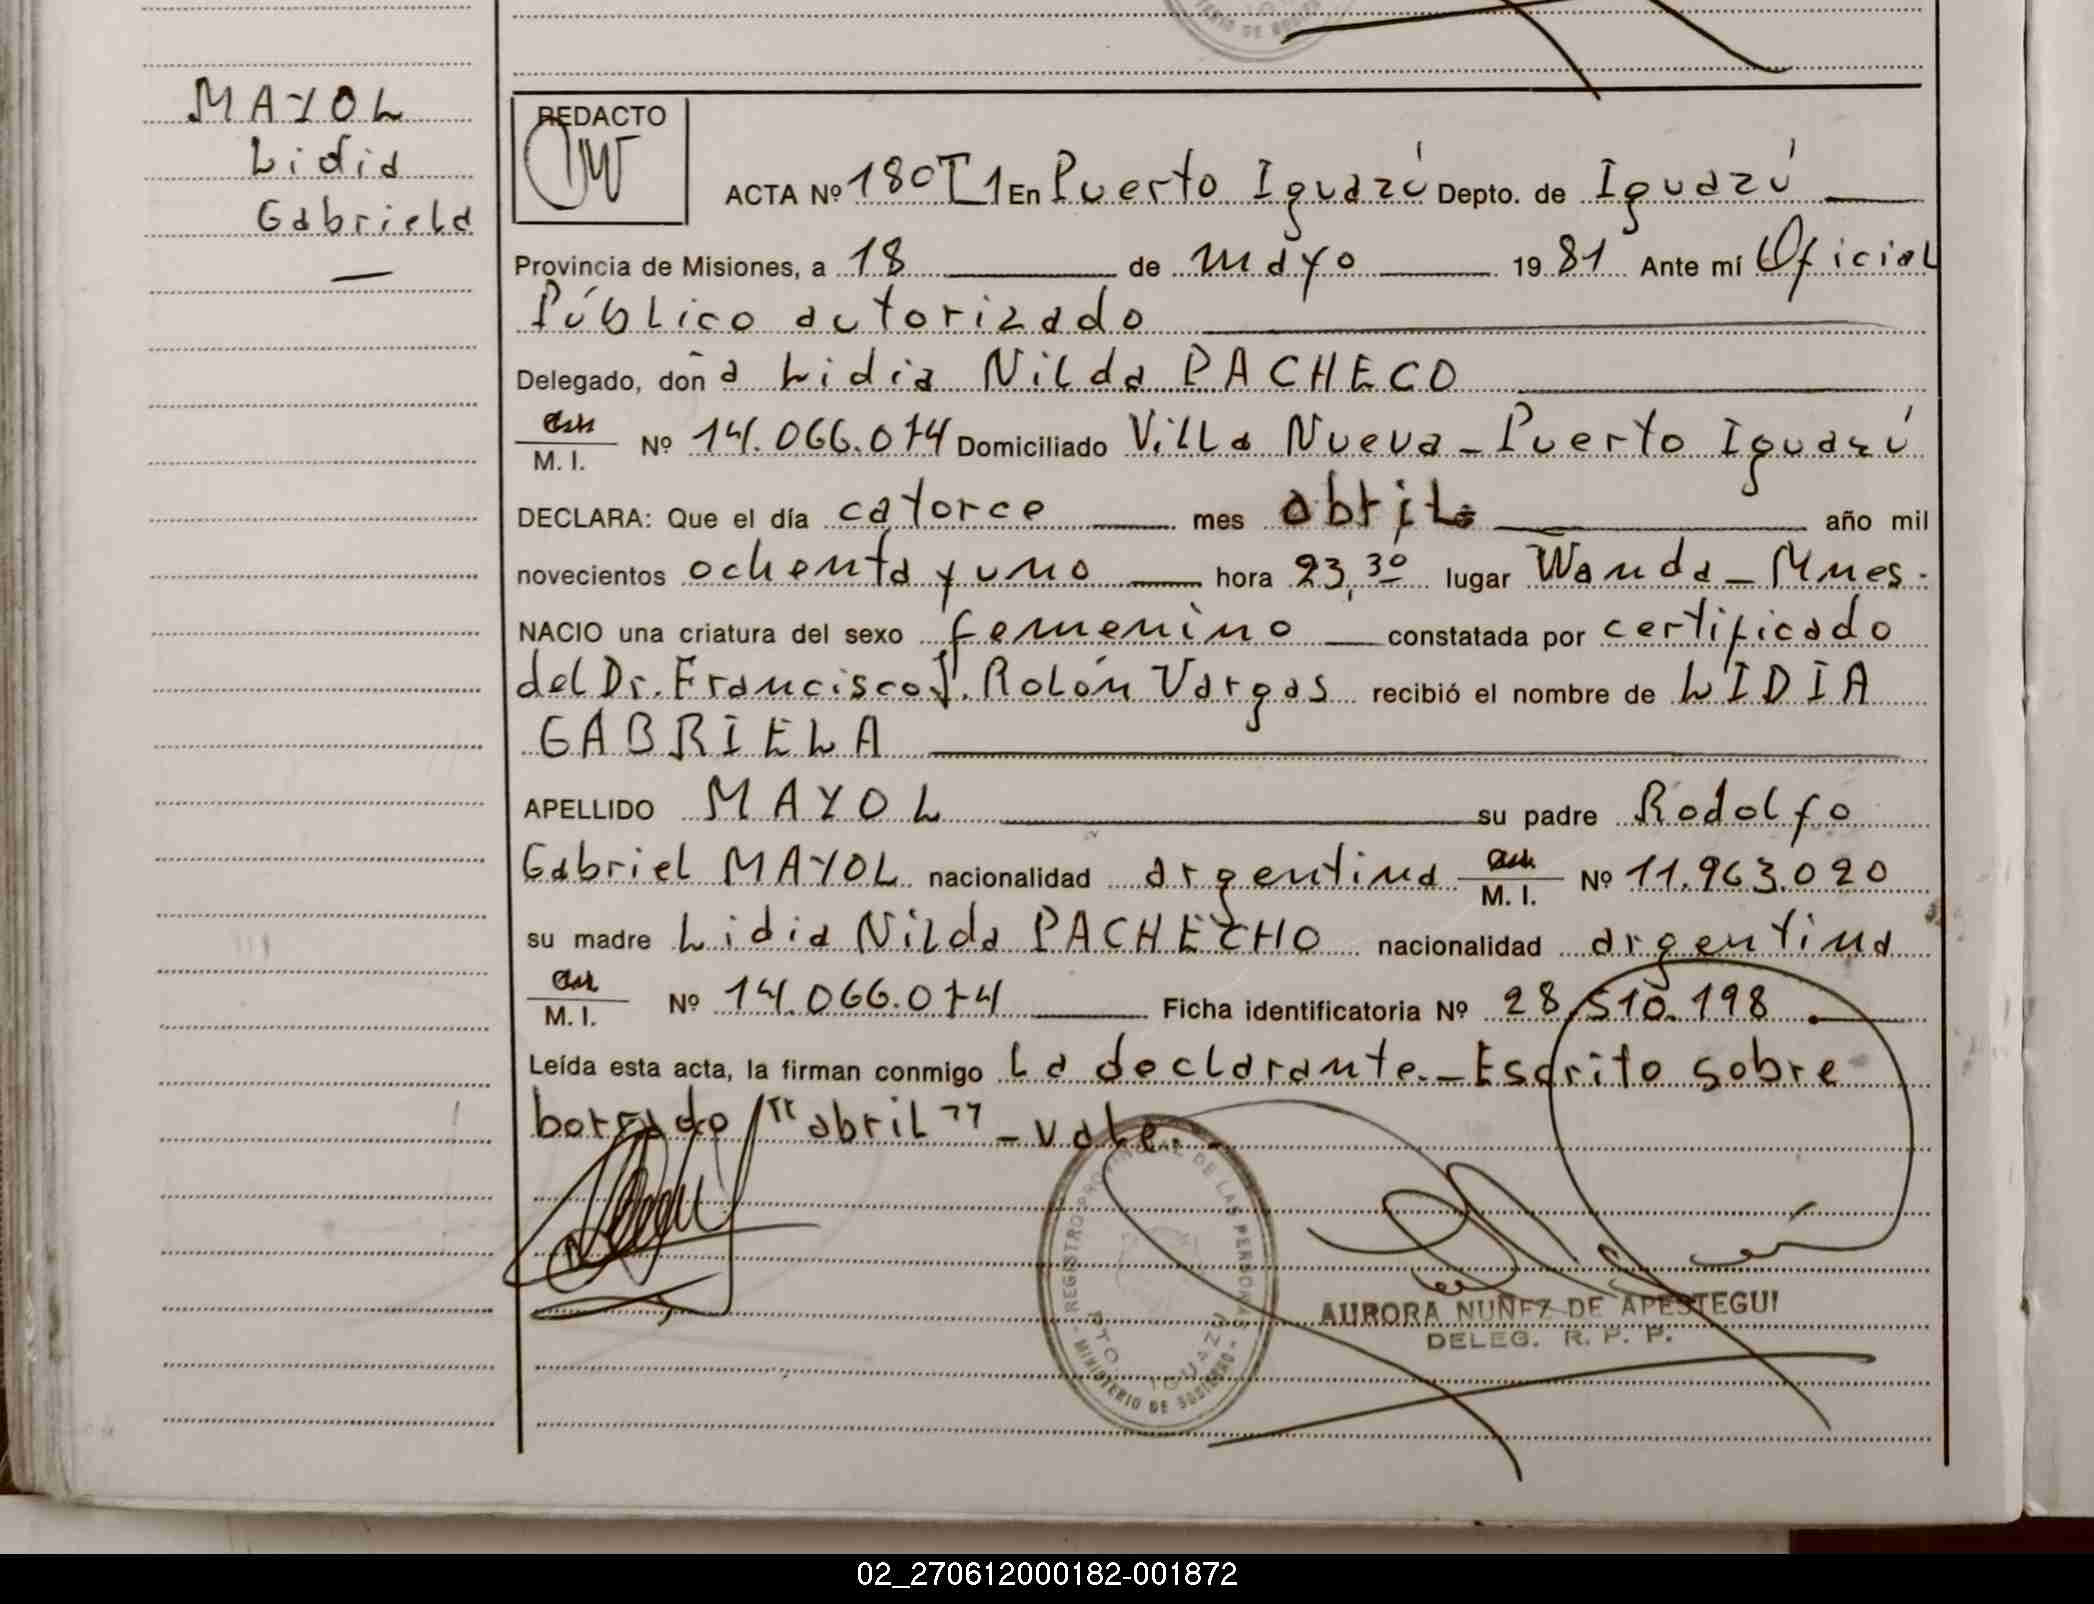 MAYOL
Lidia
Gabriela
REDACTO
ACTA Nº 180 T1 En Puerto Iguazú Depto. de Iguazú
Provincia de Misiones, a 18 de mayo 1981 Ante mí Oficial
Público autorizado
Delegado, doña Lidia Nilda PACHECO
M. I. Nº 14.066.074 Domiciliado Villa Nueva - Puerto Iguazú
DECLARA: Que el día catorce mes abril año mil
novecientos ochenta y uno hora 23,30 lugar Wanda - Mnes.
NACIO una criatura del sexo femenino constatada por certificado
del Dr. Francisco J. Rolón Vargas recibió el nombre de LIDIA
GABRIELA
APELLIDO MAYOL su padre Rodolfo
Gabriel MAYOL nacionalidad argentina M. I. Nº 11.963.020
su madre Lidia Nilda PACHECHO nacionalidad argentina
M. I. Nº 14.066.074 Ficha identificatoria Nº 28.510.198
Leída esta acta, la firman conmigo la declarante. - Escrito sobre
borrado "abril" - vale. -
REGISTRO PROVINCIAL DE LAS PERSONAS
PTO. IGUAZU
MINISTERIO DE GOBIERNO
AURORA NUÑEZ DE APESTEGUI
DELEG. R. P. P.
02_270612000182-001872